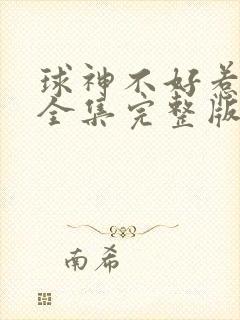 球神不好惹
全集完整版
南希